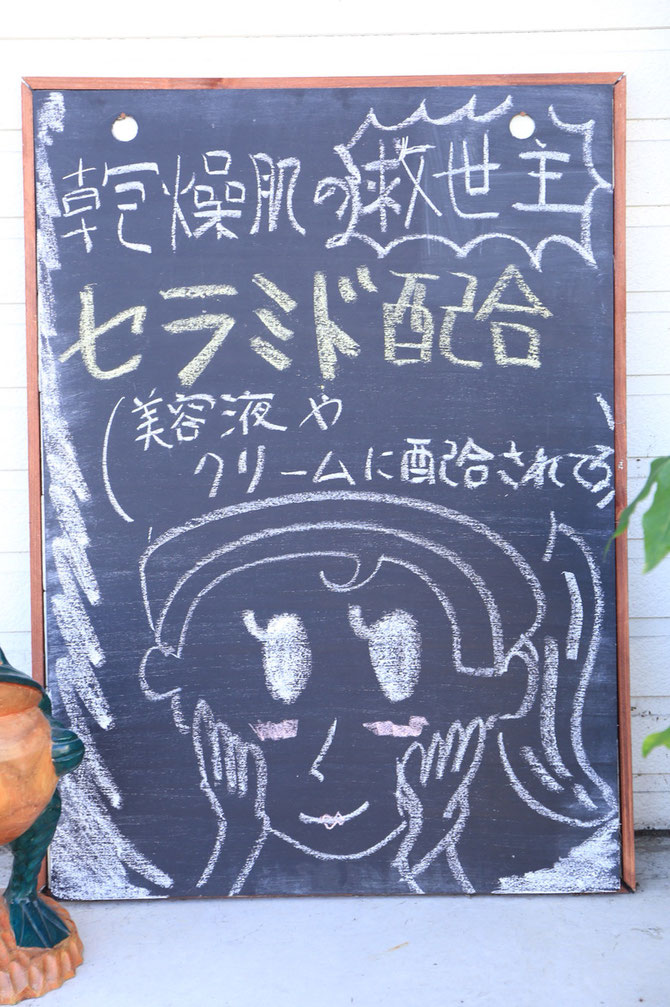 乾燥肌の救世主
セラミド配合
(美容液や
クリームに配合されてる)